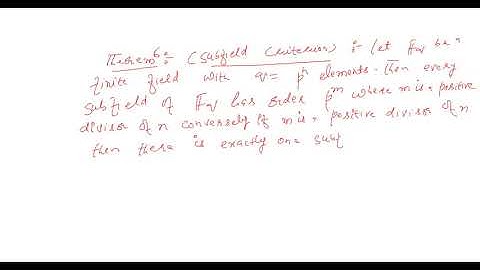 Theorem 6 :- (Subfield Criterion) :- Let Fq be a
finite field with q = pⁿ elements. Then every
subfield of Fq has order pᵐ where m is a positive
divisor of n conversely if m is a positive divisor of n
then there is exactly one subf